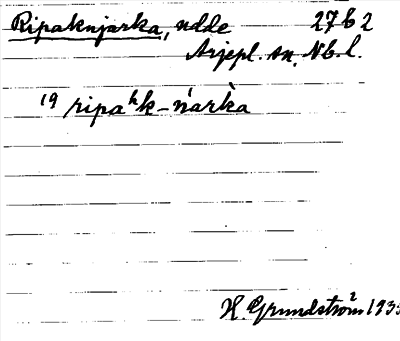 Ripaknjarka, udde 2762
Arjepl. sn. Nb. l.
19 ripaʰk-ńàrka
H. Grundström 1935